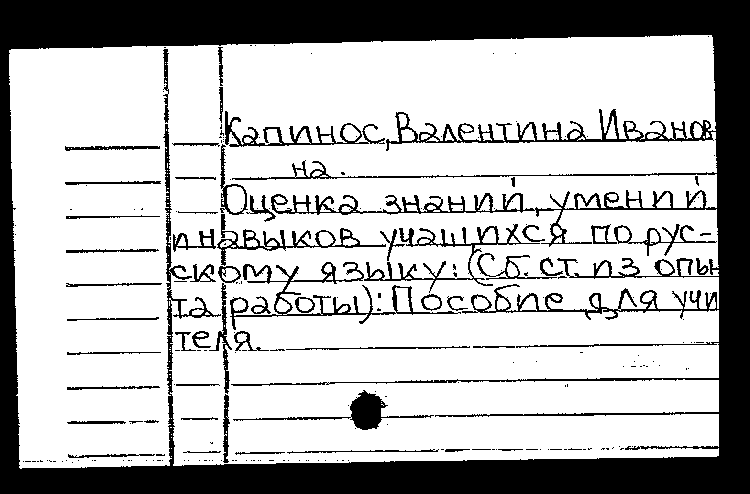 Капинос, Валентина Иванов-
на.
Оценка знаний, умений
и навыков учащихся по рус-
скому языку: (Сб. ст. из опы-
та работы): Пособие для учи
теля.